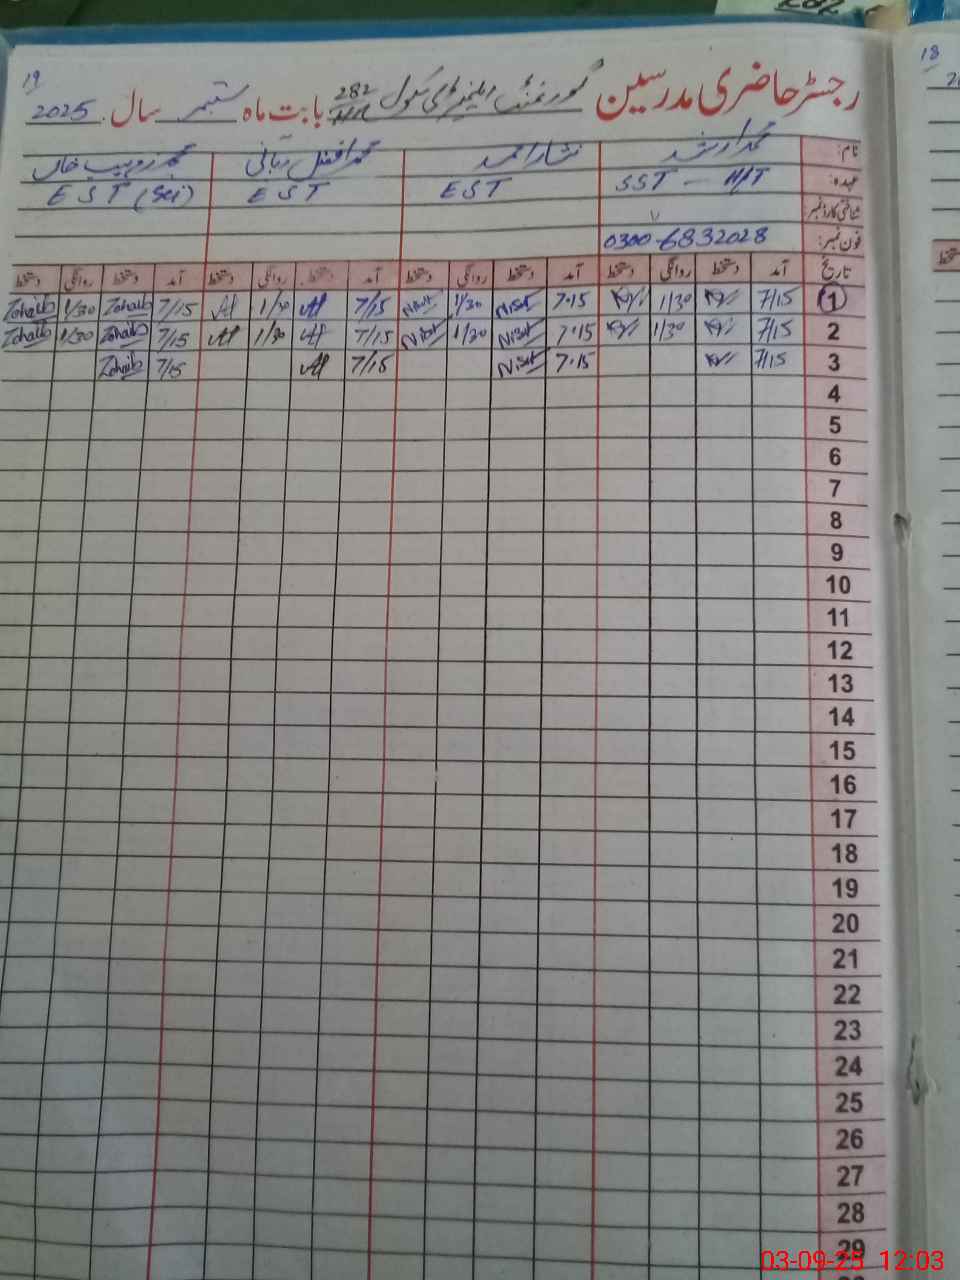 رجسٹر حاضری مدرسین گورنمنٹ ایلیمنٹری سکول 282 بابت ماہ ستمبر سال 2025
19
18
نام: محمد ارشد نثار احمد محمد افضل ربانی محمد زوہیب خاں
عہدہ: SST - H/T EST EST EST (Sci)
شناختی کارڈ نمبر:
فون نمبر: 0300-6832028
تاریخ آمد دستخط روانگی دستخط آمد دستخط روانگی دستخط آمد دستخط روانگی دستخط آمد دستخط روانگی دستخط
1 7/15 1/30 7·15 Nisar 1/30 Nisar 7/15 Af 1/30 Af 7/15 Zohaib 1/30 Zohaib
2 7/15 1/30 7·15 Nisar 1/30 Nisar 7/15 Af 1/30 Af 7/15 Zohaib 1/30 Zohaib
3 7/15 7·15 Nisar 7/15 Af 7/15 Zohaib
4
5
6
7
8
9
10
11
12
13
14
15
16
17
18
19
20
21
22
23
24
25
26
27
28
29
03-09-25 12:03